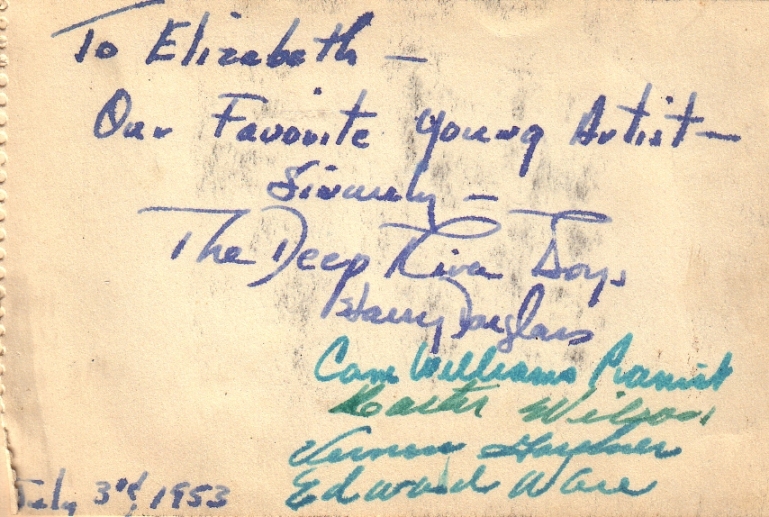 To Elizabeth —
Our Favorite Young Artist —
Sincerely —
The Deep River Boys
Harry Douglass
Cam Williams Pianist
Carter Wilson
Vernon Gardner
Edward Ware
July 3rd, 1953